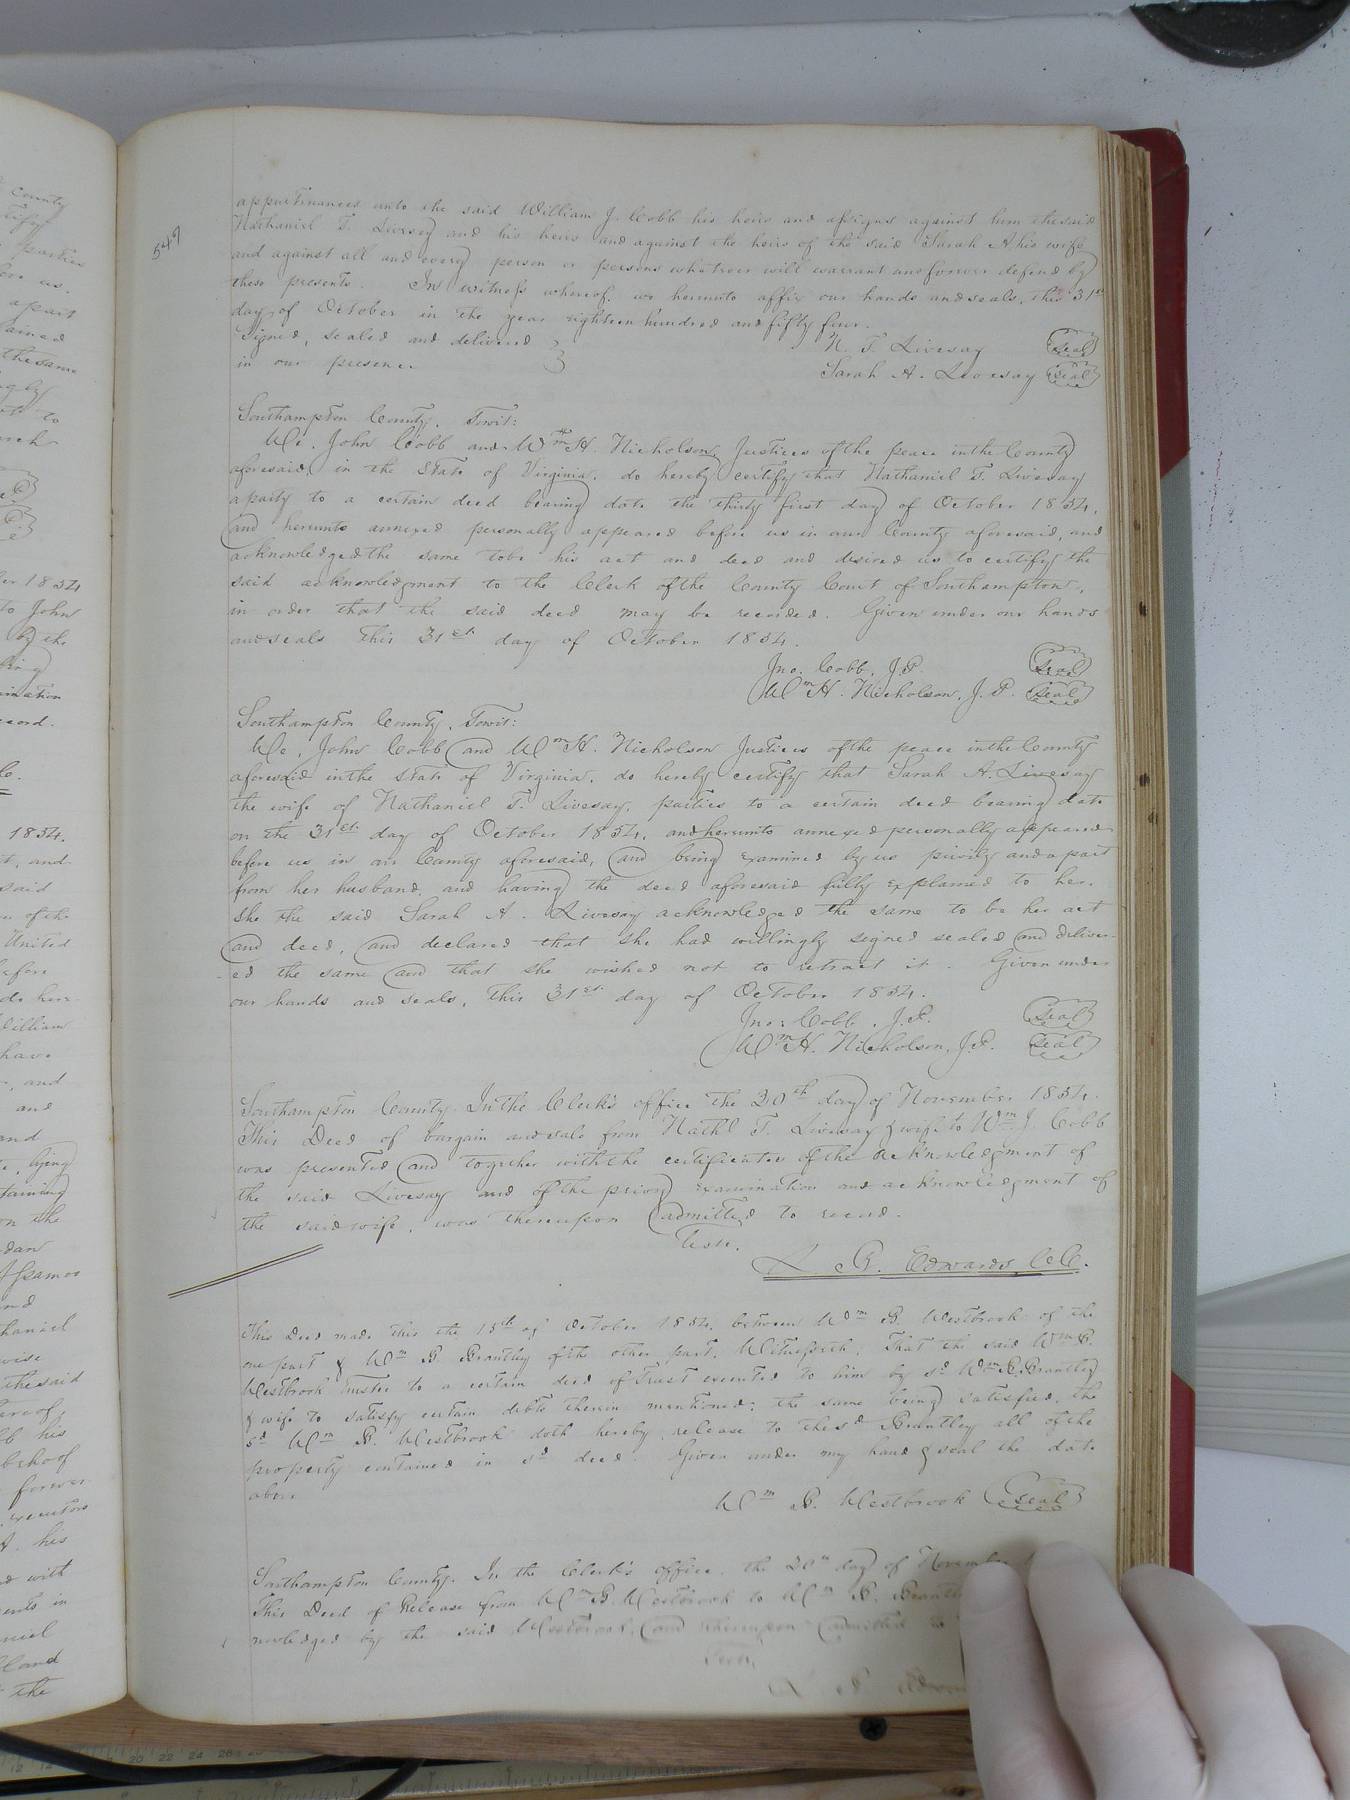 549
appurtinances unto the said William J. Cobb his heirs and assigns against him the said
Nathaniel T. Livesay and his heirs and against the heirs of the said Sarah A his wife
and against all and every person or persons whatever will warrant and forever defend by
these presents. In witness whereof, we hereunto affix our hands and seals, this 31st
day of October in the year eighteen hundred and fifty four.
Signed, sealed and delivered
in our presence
N. T. Livesay Seal
Sarah A. Livesay Seal
Southampton County, Towit:
We, John Cobb and Wm H. Nicholson, Justices of the peace in the County
aforesaid, in the State of Virginia, do hereby certify that Nathaniel T. Livesay
a party to a certain deed bearing date the thirty first day of October 1854,
and hereunto annexed personally appeared before us in our County aforesaid, and
acknowledged the same to be his act and deed and desired us to certify the
said acknowledgment to the Clerk of the County Court of Southampton,
in order that the said deed may be recorded. Given under our hands
and seals this 31st day of October 1854.
Jno. Cobb, J.P. Seal
Wm H. Nicholson, J.P. Seal
Southampton County, Towit:
We, John Cobb and Wm H. Nicholson Justices of the peace in the County
aforesaid in the State of Virginia, do hereby certify that Sarah A. Livesay
the wife of Nathaniel T. Livesay, parties to a certain deed bearing date
on the 31st day of October 1854, and hereunto annexed personally appeared
before us in our County aforesaid, and being examined by us privily and apart
from her husband, and having the deed aforesaid fully explained to her,
she the said Sarah A. Livesay acknowledged the same to be her act
and deed, and declared that she had willingly signed sealed and deliver-
ed the same and that she wished not to retract it. Given under
our hands and seals, this 31st day of October 1854.
Jno. Cobb, J.P. Seal
Wm H. Nicholson, J.P. Seal
Southampton County. In the Clerk's office the 20th day of November 1854.
This Deed of bargain and sale from Nathl T. Livesay & wife to Wm J. Cobb
was presented and together with the certificates of the acknowledgment of
the said Livesay and of the privy examination and acknowledgment of
the said wife, was thereupon admitted to record.
Teste,
L. R. Edwards, C.C.
This Deed made this the 15th of October 1854, between Wm B. Westbrook of the
one part & Wm B. Brantley of the other part, Witnesseth, That the said Wm B.
Westbrook Trustee to a certain deed of Trust executed to him by sd Wm B. Brantley
& wife to satisfy certain debts therein mentioned; the same being satisfied, the
sd Wm B. Westbrook doth hereby release to the sd Brantley all of the
property contained in sd deed. Given under my hand & seal the date
above
Wm B. Westbrook Seal
Southampton County. In the Clerk's office, the 20th day of November
This Deed of Release from Wm B. Westbrook to Wm B.
nowledged by the said Westbrook, and thereupon admitted to
Teste,